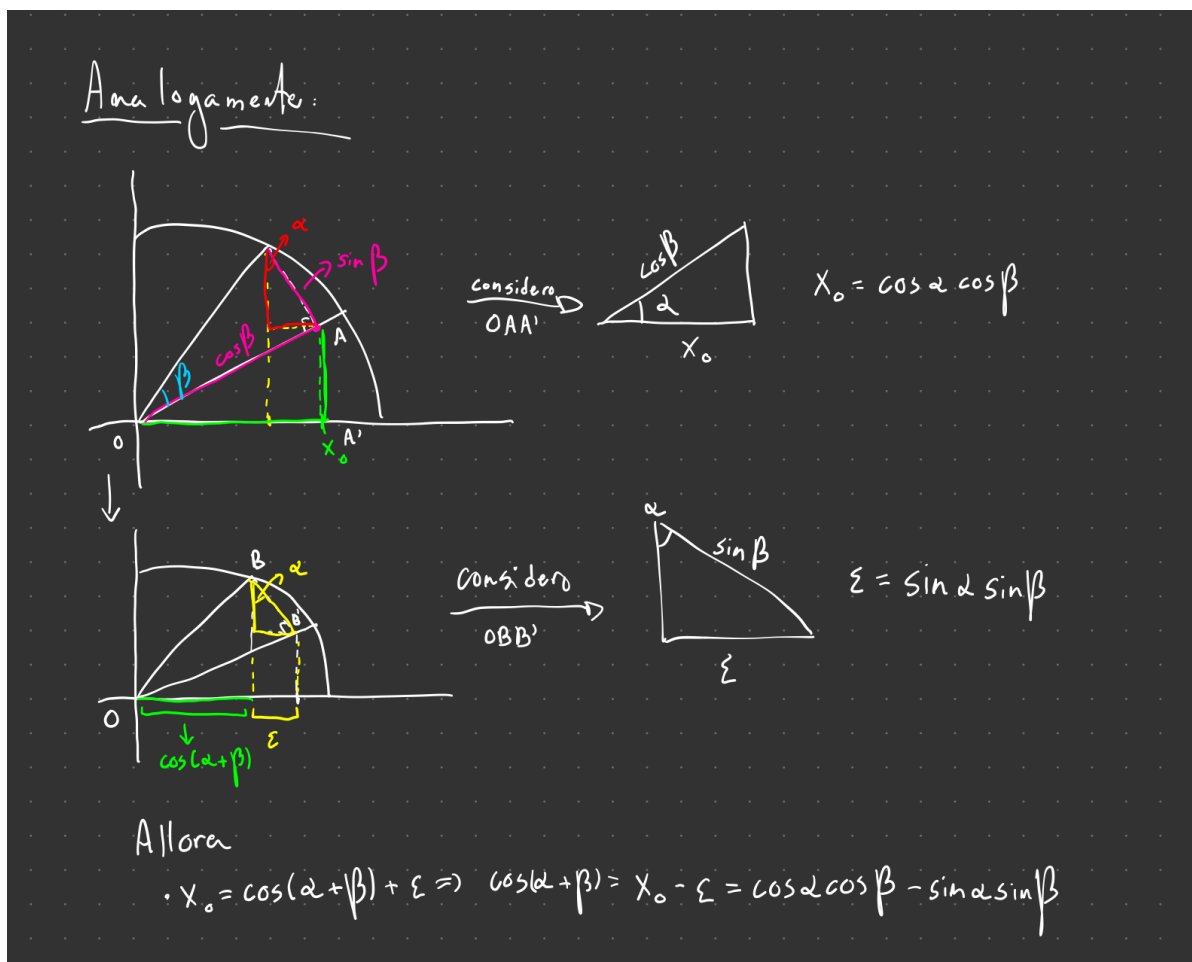 Analogamente:
α
sin β
cosβ
β
A
O
A'
X₀
considero
OAA'
cosβ
α
X₀
X₀ = cos α cos β
B
α
B'
O
ε
cos(α+β)
considero
OBB'
α
sin β
ε
ε = sin α sin β
Allora
· X₀ = cos(α+β) + ε => cos(α+β) = X₀ - ε = cos α cos β - sin α sin β